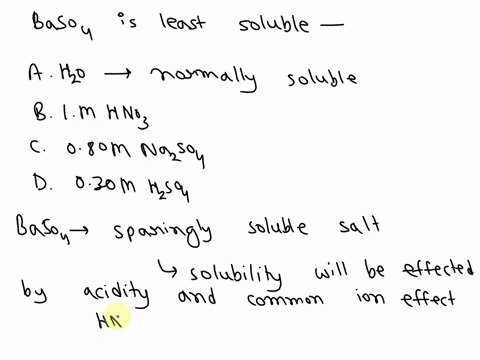 BaSO4 is least soluble —
A. H2O → normally soluble
B. 1.M HNO3
C. 0.80M Na2SO4
D. 0.20M H2SO4
BaSO4 → sparingly soluble salt
↳ solubility will be effected
by acidity and common ion effect
HN